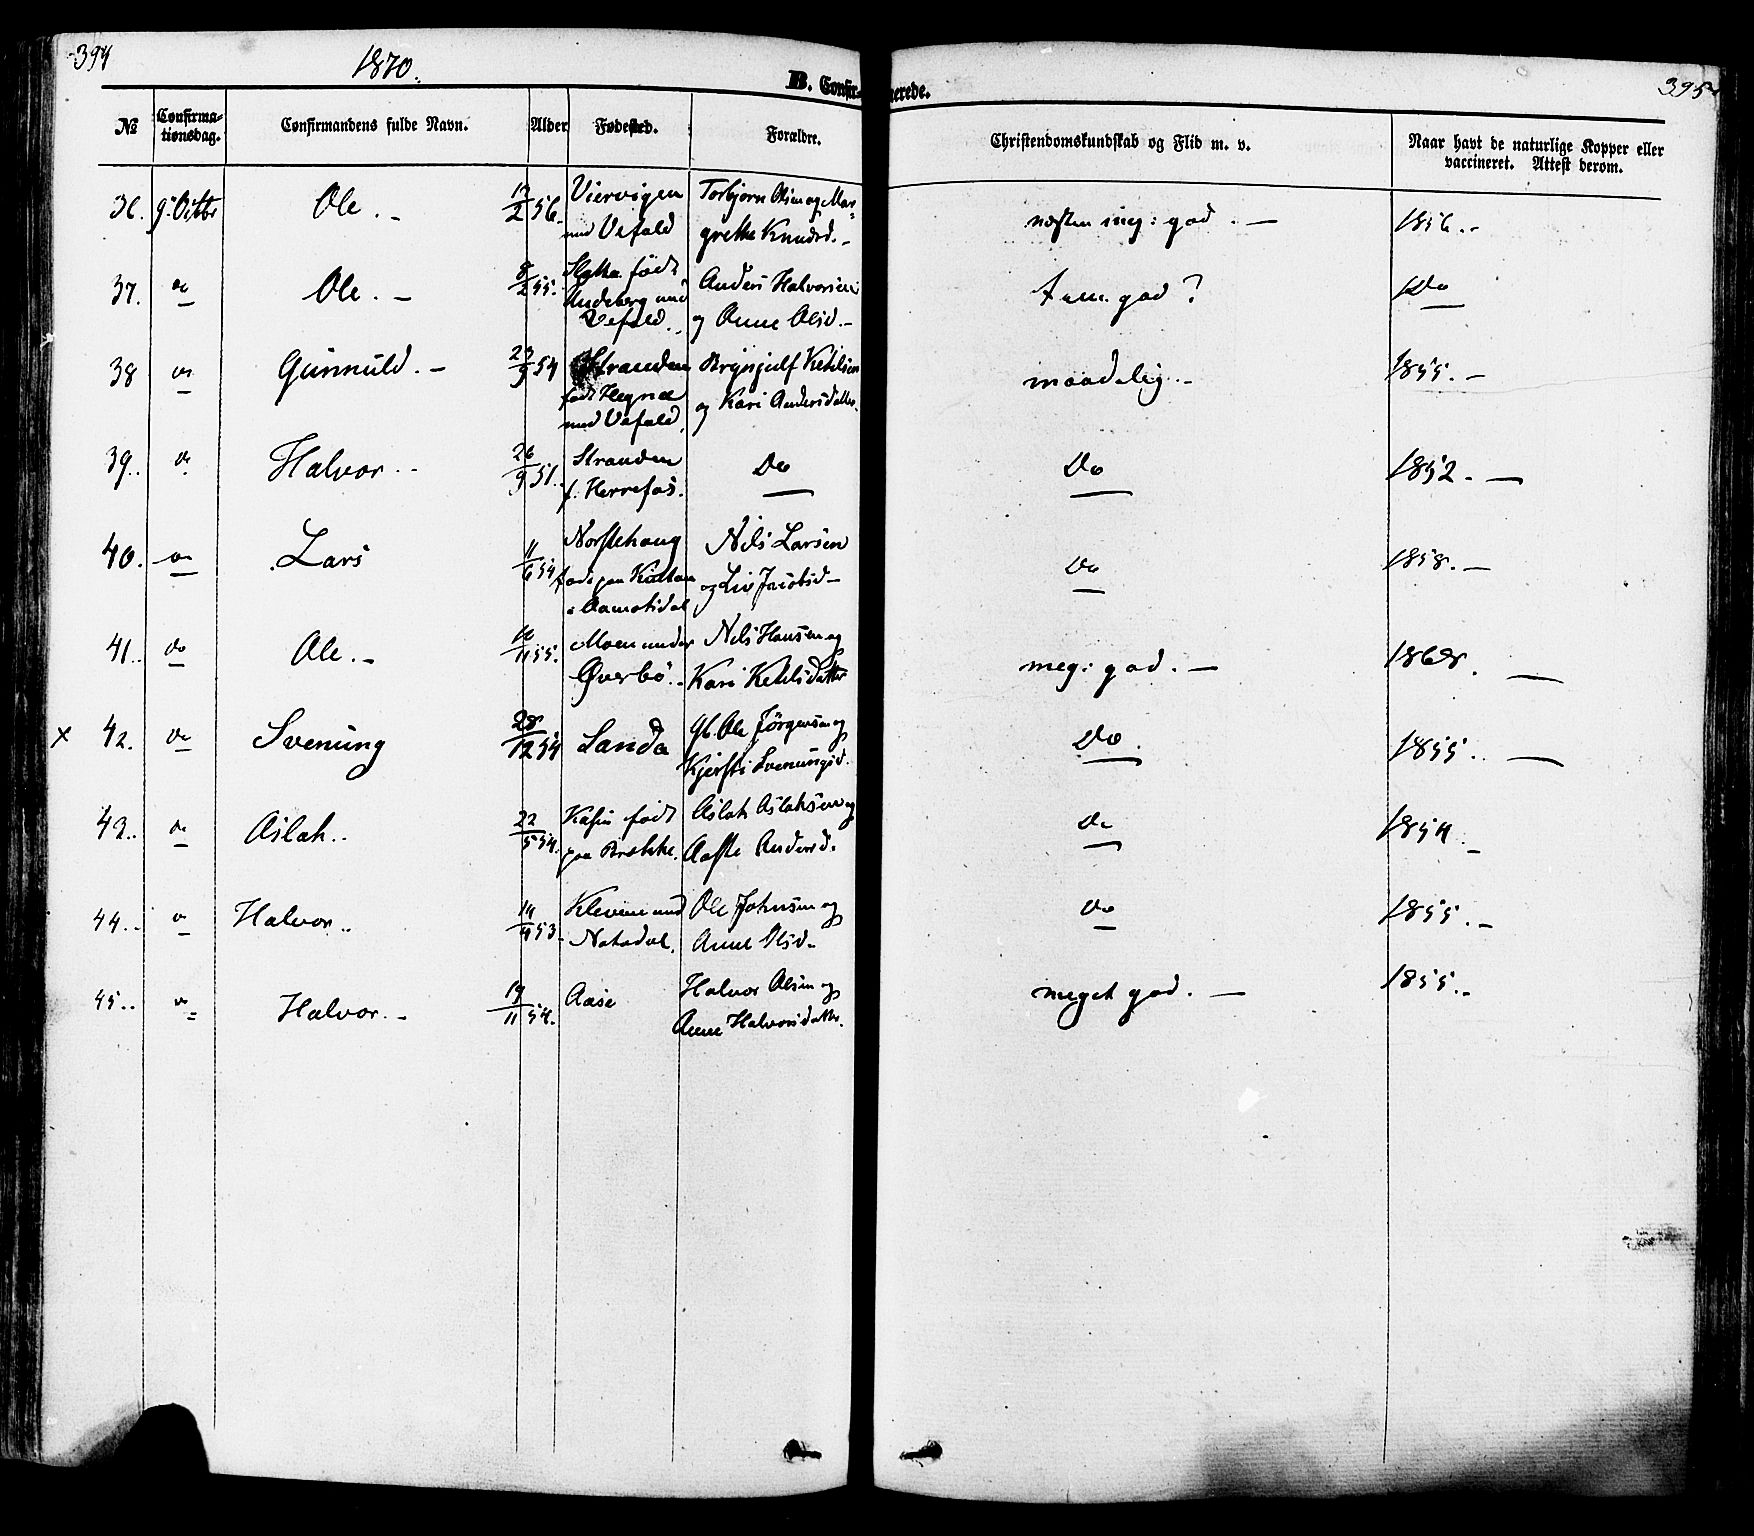 394
1870.
B. Confir-
merede.
395
№ Confirma-tionsdag. Confirmandens fulde Navn. Alder Fødested. Forældre. Christendomskundskab og Flid m. v. Naar havt de naturlige Kopper eller vaccineret. Attest derom.
36. 9. Octbr Ole. - 12/2 56. Viervigen Torbjørn Olsen og Mar= næsten meg: god. - 1856. -
und Vefald grethe Knudsd. -
37. do Ole. - 8/2 55. født Anders Halvorsen god? Do
und Vefald. og Anne Olsd. -
38 do Gunnuld. - 23/9 54 Stranden Brynjulf Ketilsen maadelig. - 1855. -
født Hegna og Kari Andersdatter.
und Vefald.
39. do Halvor. - 26/9 51. Stranden Do Do 1852. -
f. Herrefos.
40. do Lars 11/6 54 Norstehaug Nils Larsen Do 1858. -
født paa og Liv Jacobsd -
i Aamotsdal
41. do Ole. - 10/11 55. Moen under Nils Hansen og meg: god. - 1868. -
Øverbø. - Kari Ketilsdatter
x 42. do Svenung 28/12 54 Sanda Gb. Ole Jörgensen og Do. 1855. -
Kjersti Svenungsd.
43. do Aslak. 22/5 54. Kasin født Aslak Aslaksen og do 1854. -
paa Brekke. Aaste Andersd.
44. do Halvor. 14/4 53. Klevene und Ole Johnsen og Do 1855. -
Notodal. Anne Olsd -
45. do Halvor. - 19/11 54. Aase Halvor Olsen og meget god. - 1855. -
Anne Halvorsdatter.